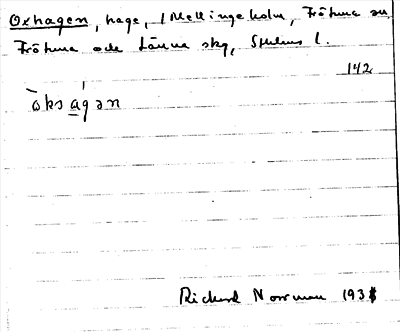 Oxhagen, hage, i Mellingeholm, Frötuna sn,
Frötuna och Länna skg, Sthlms l.
142
òksàgan
Richard Norrman 193